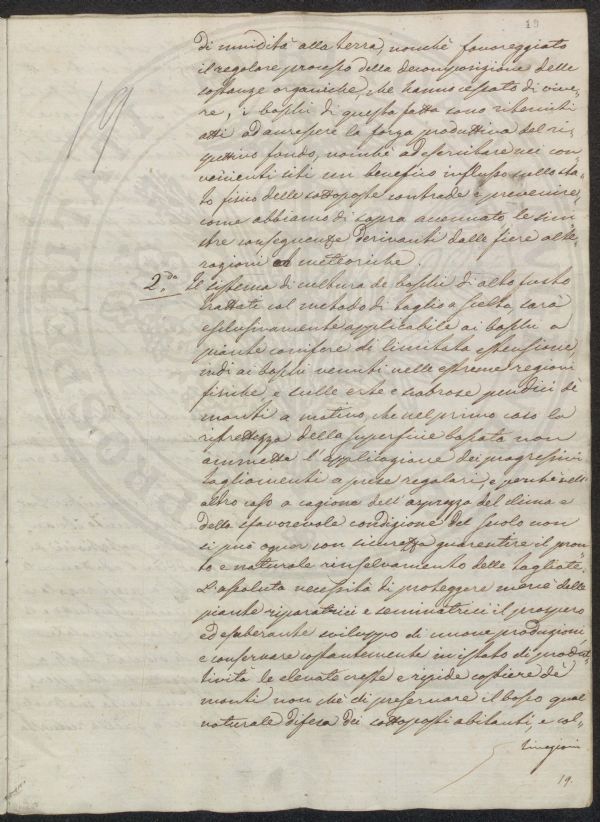 19
19
di umidità alla terra, nonchè favoreggiato
il regolare processo della decomposizione delle
sostanze organiche, che hanno cessato di vive-
re, i boschi di questa fatta sono ritenuti
atti ad accrescere la forza produttiva del ri-
spettivo fondo, nonchè ad esercitare nei con-
venienti siti un benefico influsso sullo sta-
to fisico delle sottoposte contrade e prevenire,
come abbiamo di sopra accennato, le sini-
stre conseguenze derivanti dalle fiere alte-
razioni meteoriche.
2.do Il sistema di coltura de' boschi di alto fusto
trattati col metodo di taglio a scelta, sarà
esclusivamente applicabile ai boschi a
piante conifere di limitata estensione,
indi ai boschi venuti nelle estreme regioni
fisiche, e sulle erte e scabrose pendici de'
monti a motivo, che nel primo caso la
ristrettezza della superficie boscata non
ammette l'applicazione dei progressivi
tagliamenti a prese regolari, e perchè nell'
altro caso a cagione dell'asprezza del clima e
della sfavorevole condizione del suolo non
si può ognor con sicurezza guarentire il pron-
to e naturale rinselvamento delle tagliate.
L'assoluta necessità di proteggere mercè delle
piante riparatrici e seminatrici il prospero
ed esuberante sviluppo di nuove produzioni,
e conservare costantemente in istato di produt-
tività le elevate creste e ripide costiere de'
monti non che di preservare il bosco qual
naturale difesa dei sottoposti abitanti, e col-
tivazioni
19.